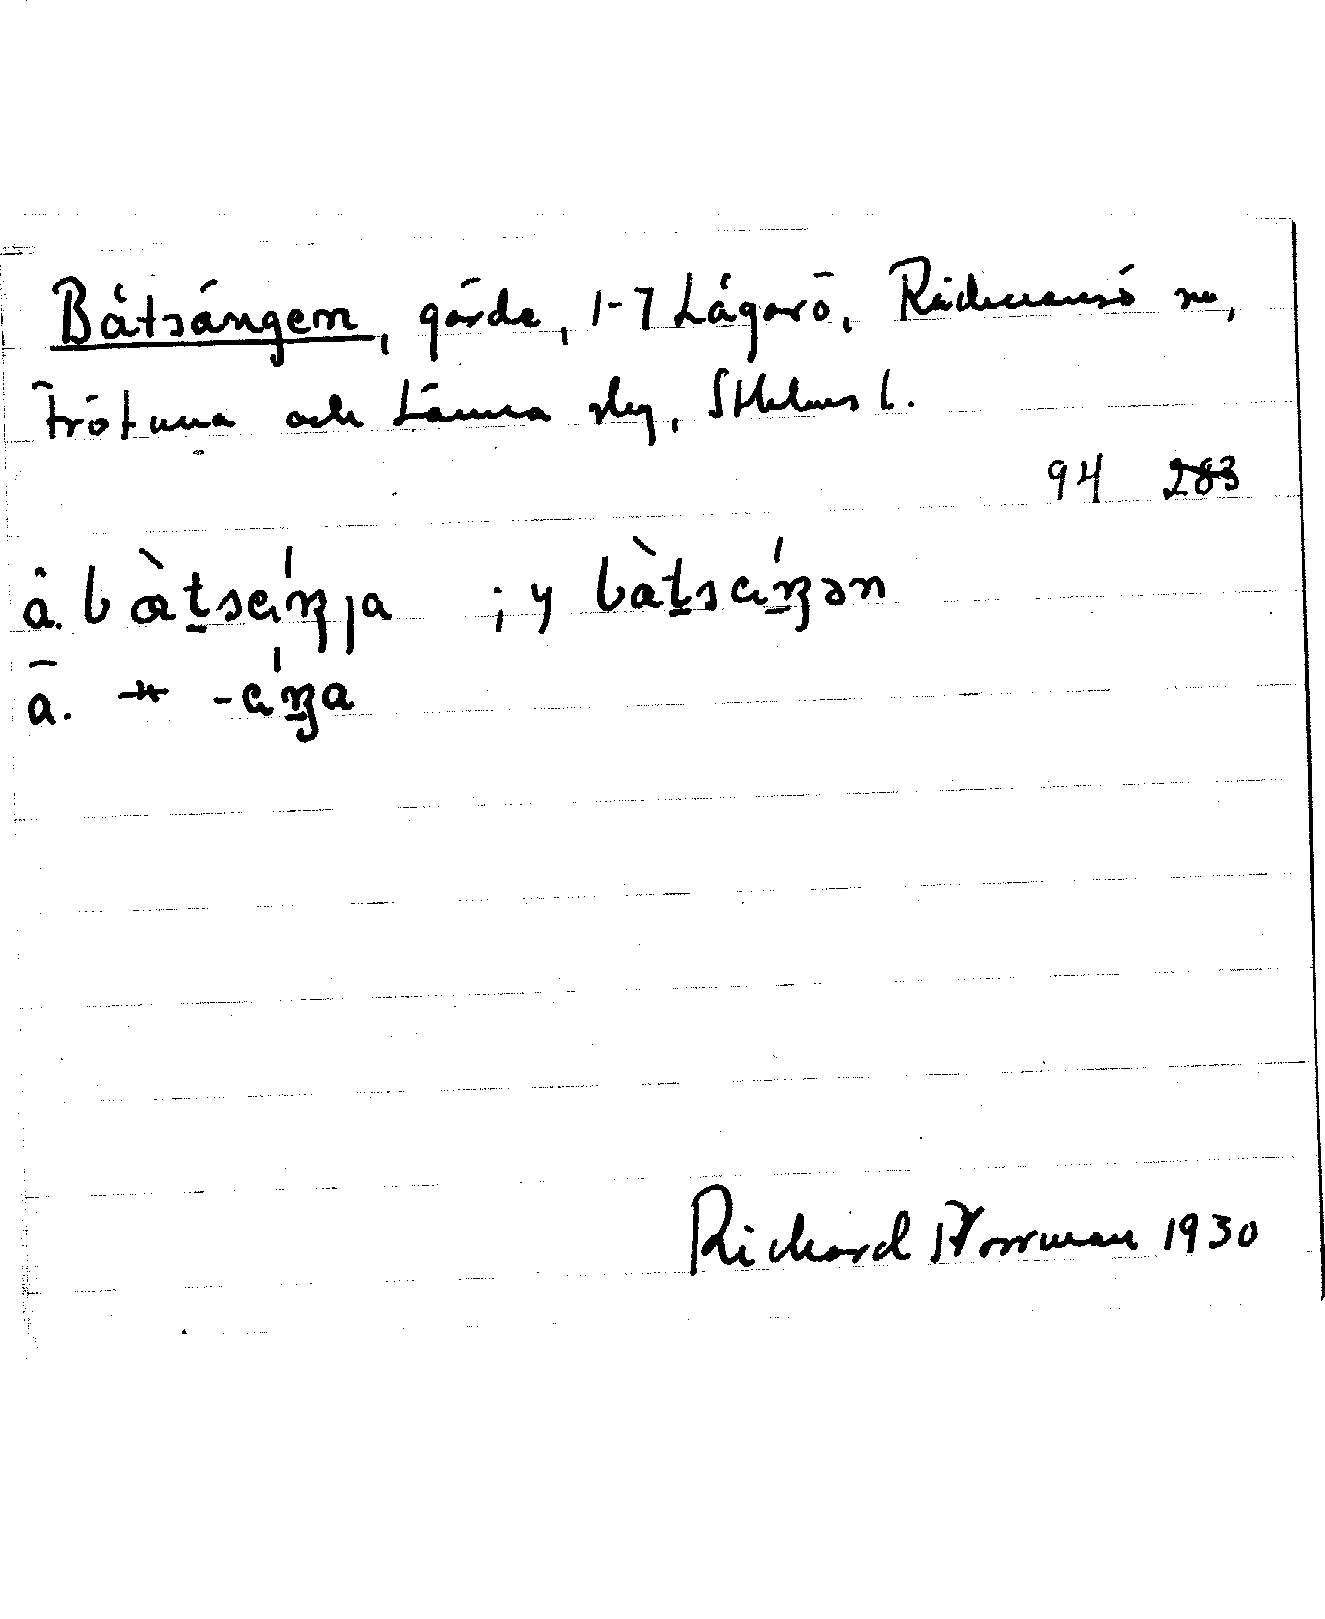 Båtsängen, gärde, 1-7 Lågarö, Rådmansö sn,
Frötuna och Länna slg, Sthlms l.
94 283
å. bàt̠scıŋja ; y bàt̠scıŋən
ä. -cıŋa
Richard Norrman 1930